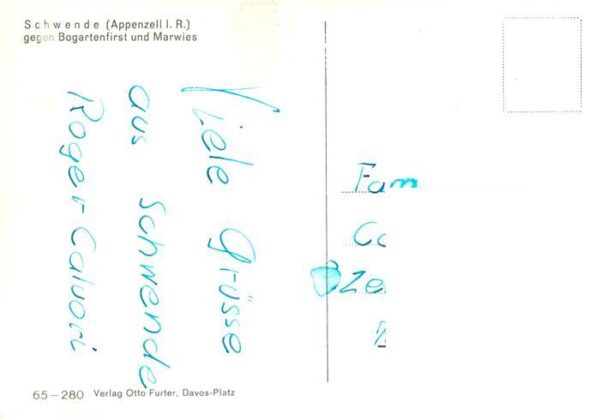 Schwende (Appenzell I. R.)
gegen Bogartenfirst und Marwies
Viele Grüsse
aus Schwende
Fam
65—280 Verlag Otto Furter, Davos-Platz